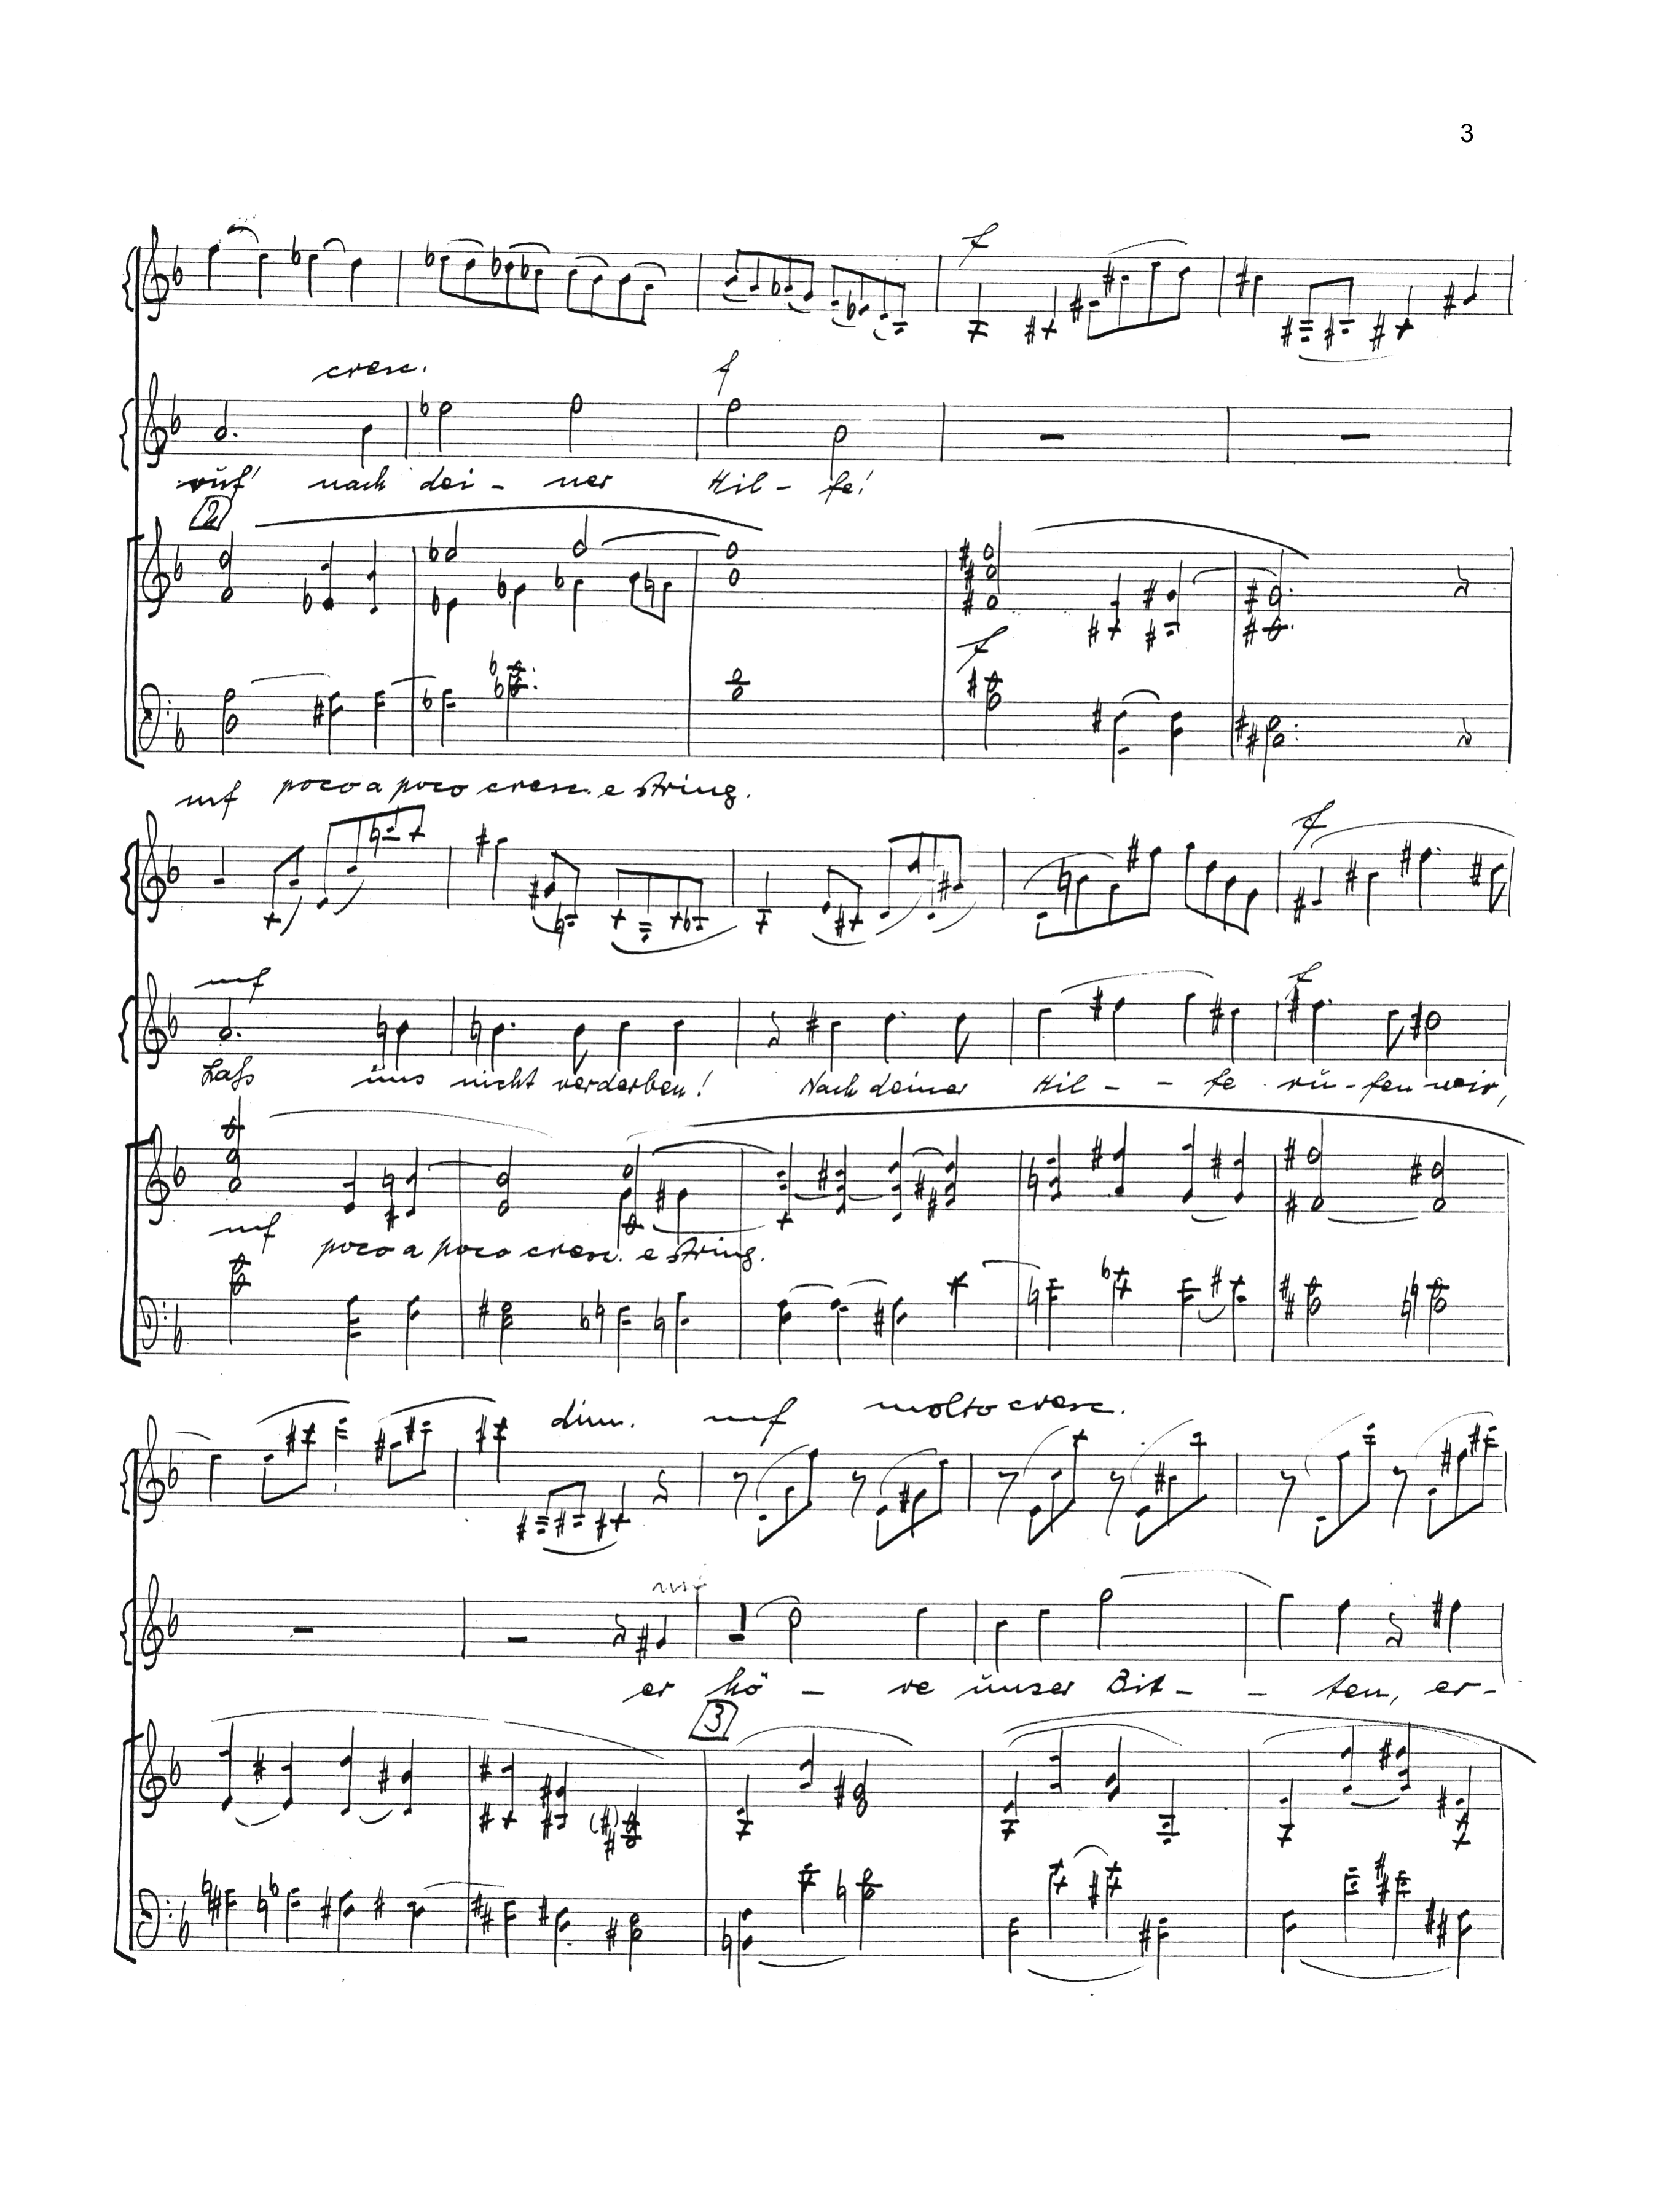 3
f
cresc. f
ruf' nach dei - ner Hil - fe!
2
f
mf poco a poco cresc. e string.
f
mf f
Laß uns nicht verderben! Nach deiner Hil - - fe ru - fen wir,
mf
poco a poco cresc. e string.
dim. mf molto cresc.
mf
er hö - re unser Bit - - ten, er -
3